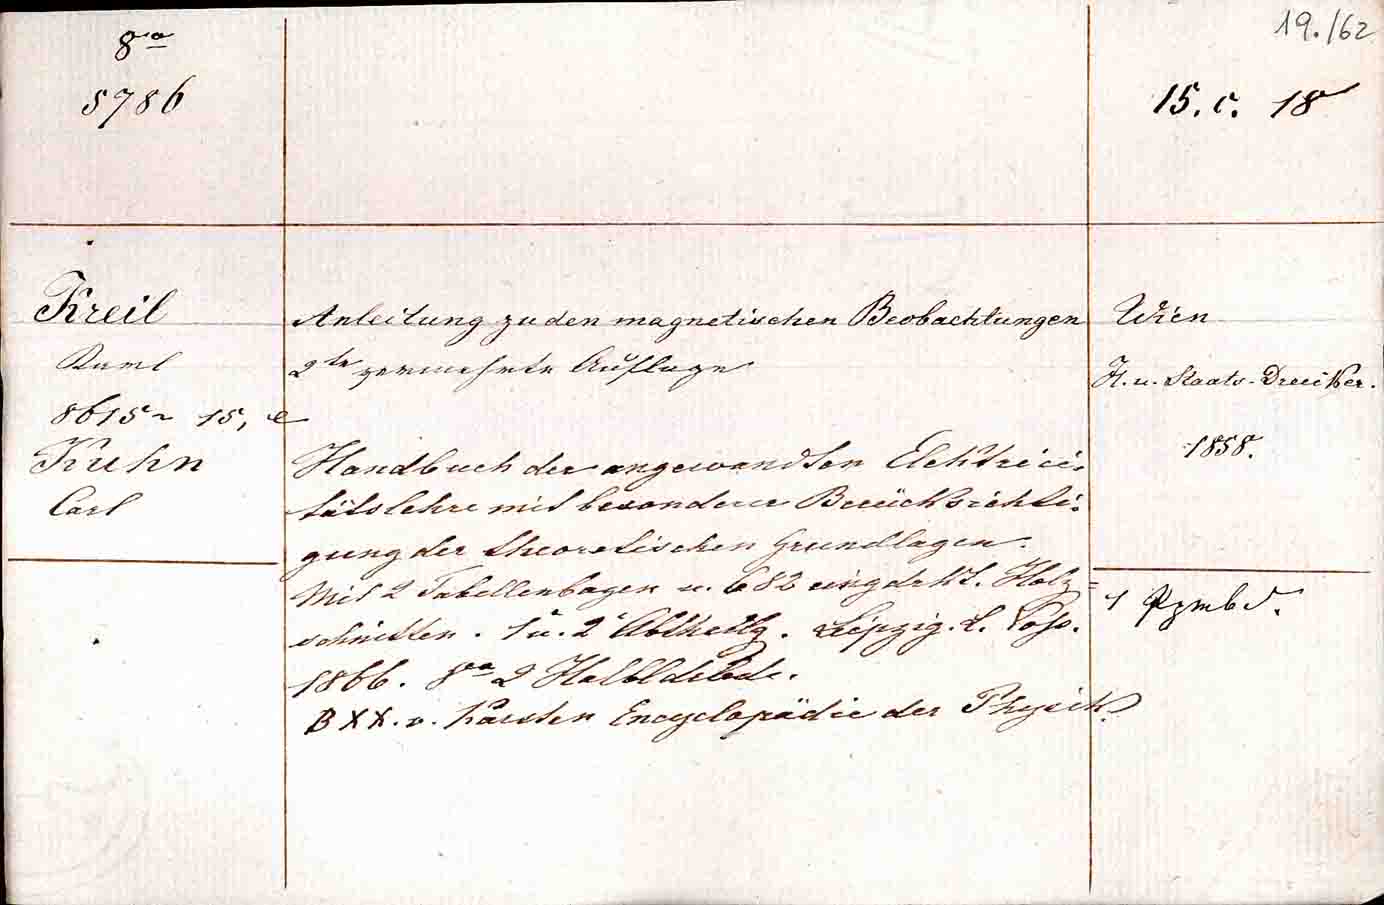 8vo
19./62
5786
15. c. 18
Kreil
Anleitung zu den magnetischen Beobachtungen
Wien
Karl
2te vermehrte Auflage
K. u. Staats-Drucker.
8615 15, e
1858.
Kuhn
Handbuch der angewandten Elektrici-
Carl
tätslehre mit besonderer Berücksichti-
gung der theoretischen Grundlagen.
Mit 2 Tabellenbogen u. 682 eingedrkt. Holz=
1 Ppmbd.
schnitten. 1 u. 2 Abtheilg. Leipzig. L. Voss.
1866. 8vo 2 Halbldrbde.
B XX. v. Karsten Encyclopädie der Physik